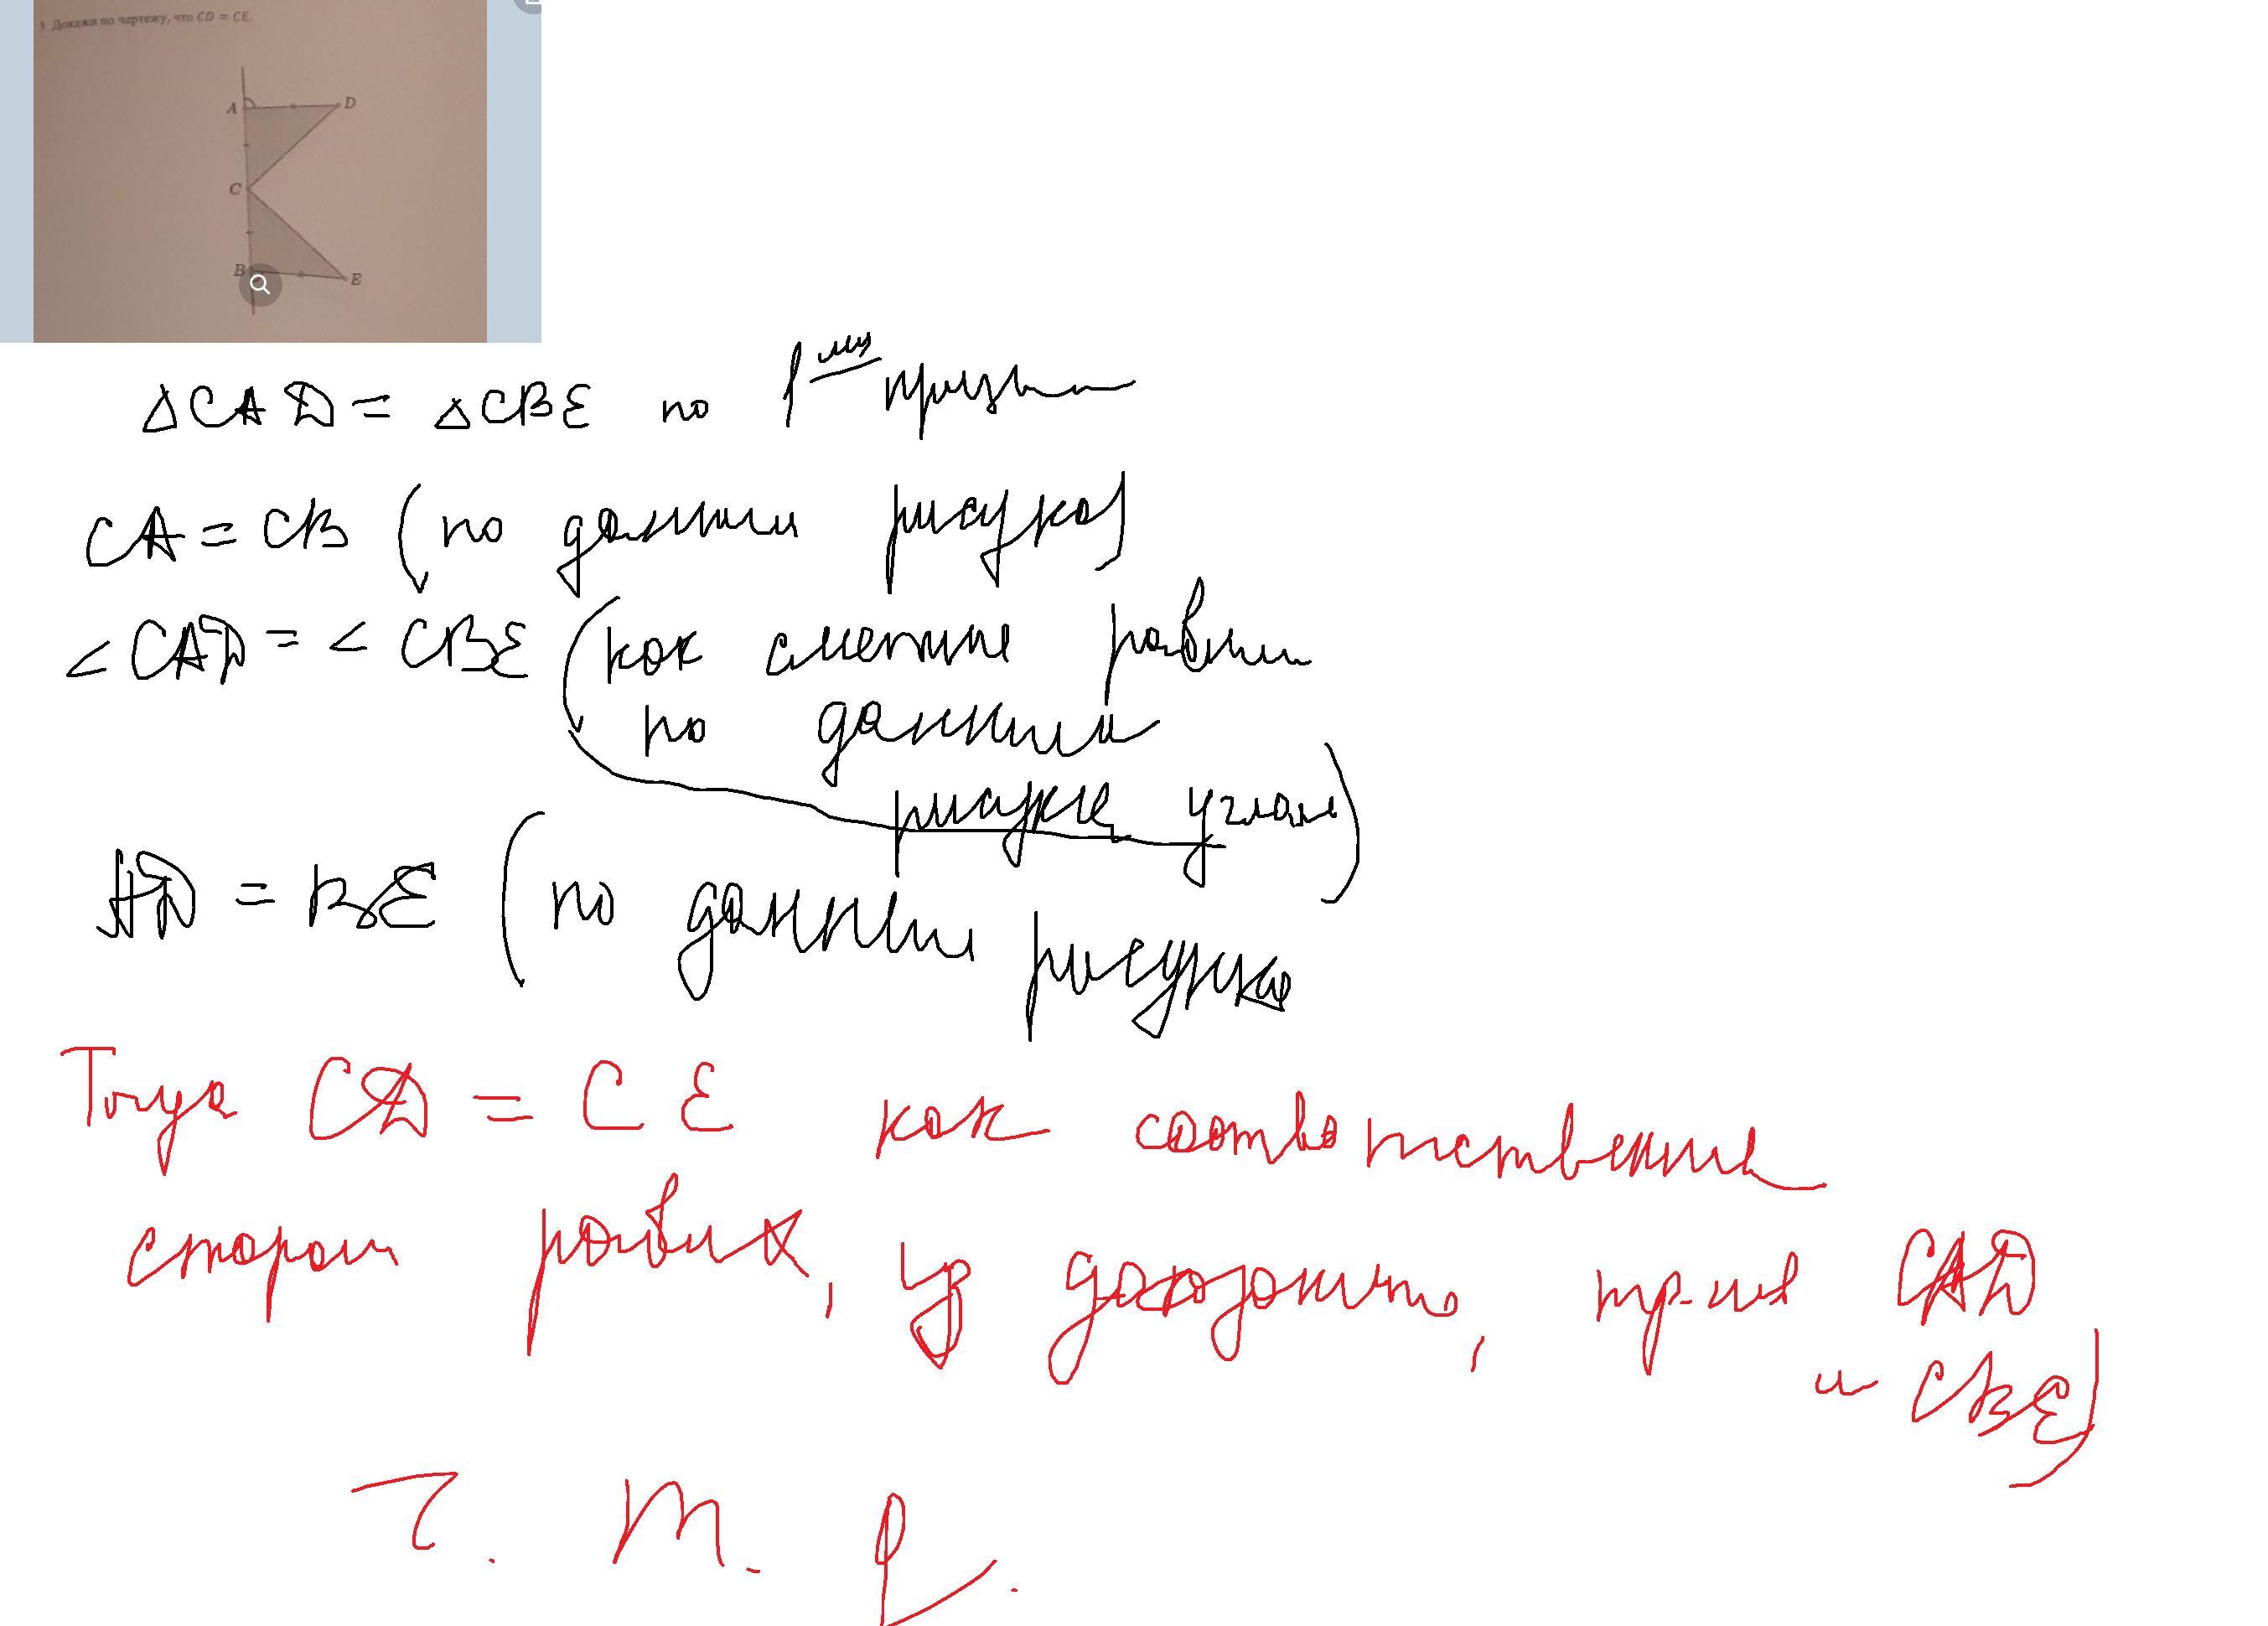 3. Докажи по чертежу, что CD = CE.
A
D
C
B
E
△CAD = △CBE по 1 призн
CA = CB (по данным рисунка)
<CAD = < CBE (как смежные равным
по данным
рисунка углам)
AD = BE (по данным рисунка
Тогда CD = CE как соответственные
сторон равных, из доказанного, тр-ов CAD
и CBE)
Ч. Т. Д.